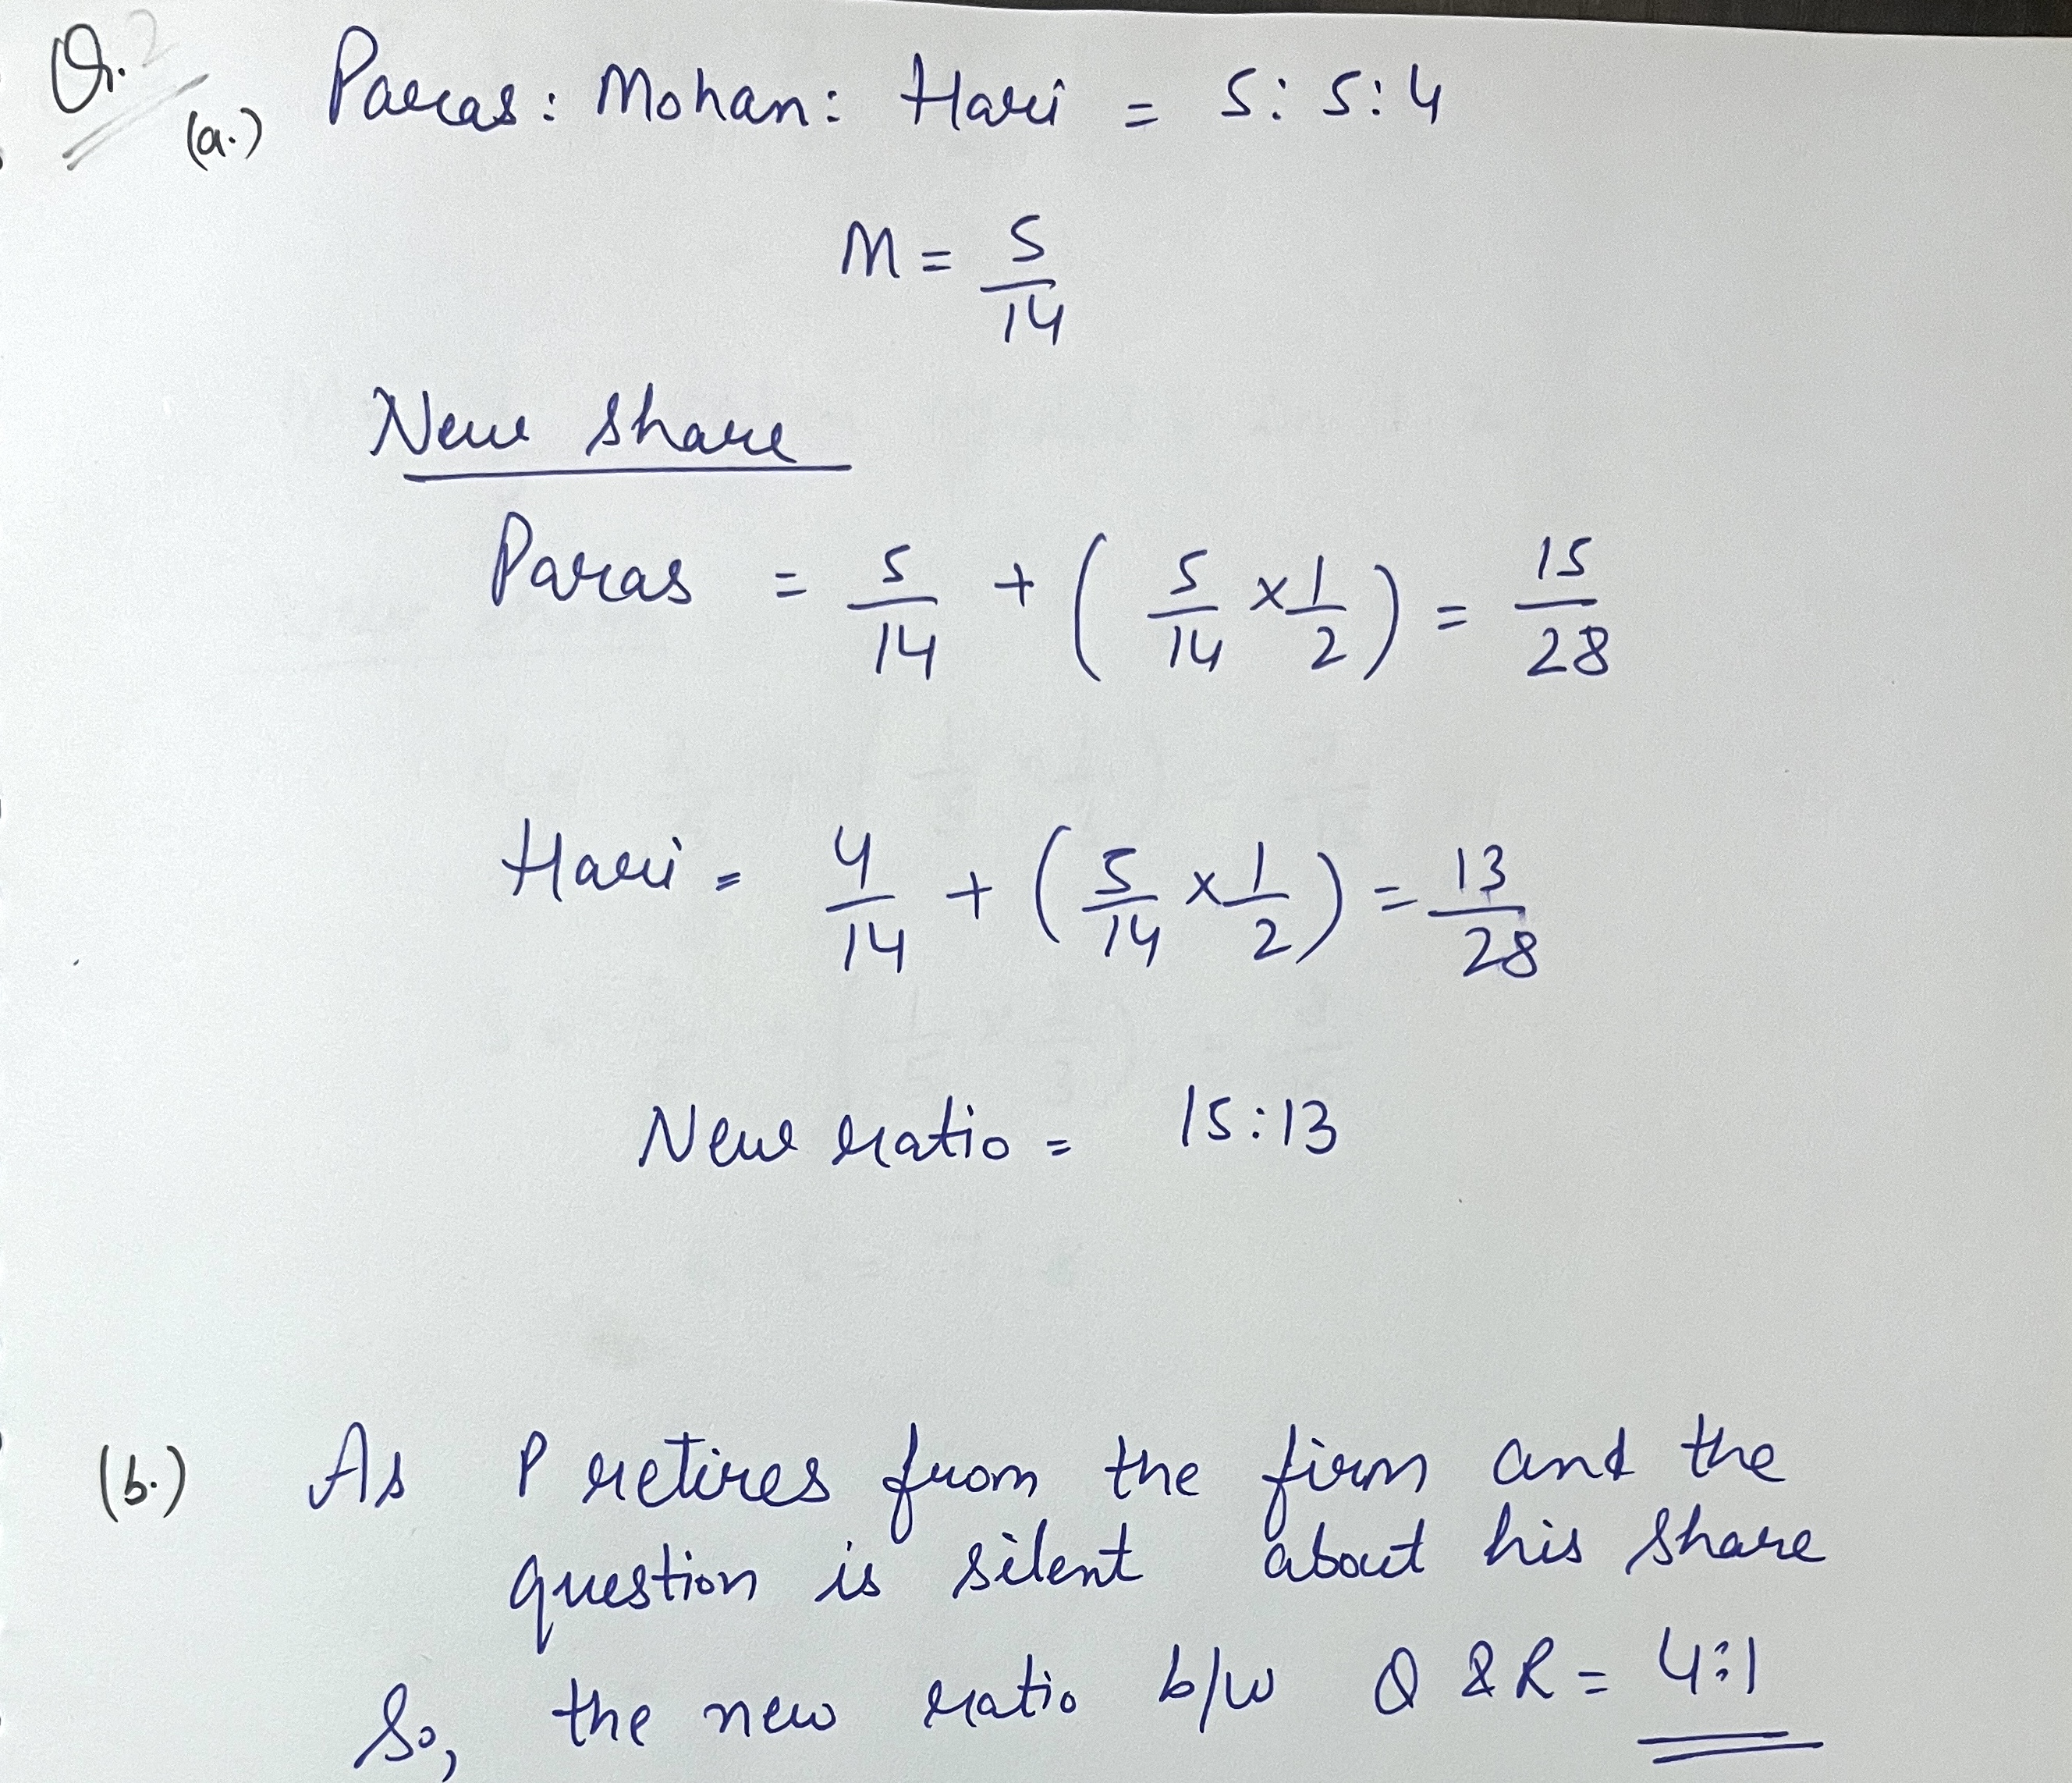 Q.2
(a.) Paras : Mohan : Hari = 5 : 5 : 4
M = 5/14
New share
Paras = 5/14 + ( 5/14 × 1/2 ) = 15/28
Hari = 4/14 + ( 5/14 × 1/2 ) = 13/28
New ratio = 15 : 13
(b.) As P retires from the firm and the
question is silent about his share
So, the new ratio b/w Q & R = 4:1